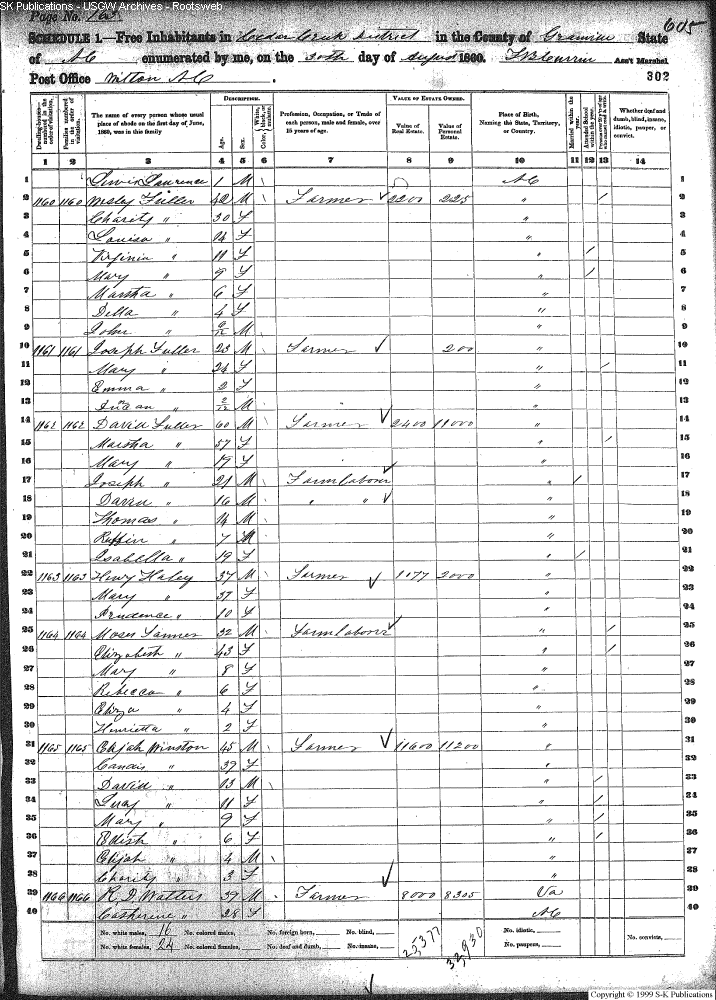 SK Publications - USGW Archives - Rootsweb
Page No.
605
SCHEDULE 1.—Free Inhabitants in Cedar Creek District in the County of Granville State
of NC enumerated by me, on the 30th day of August 1860. Ass't Marshal
Post Office Wilton NC . 302
DESCRIPTION. VALUE OF ESTATE OWNED.
Dwelling-houses—numbered in the order of visitation. Families numbered in the order of visitation. The name of every person whose usual place of abode on the first day of June, 1860, was in this family Age. Sex. Color, White, black, or mulatto. Profession, Occupation, or Trade of each person, male and female, over 15 years of age. Value of Real Estate. Value of Personal Estate. Place of Birth, Naming the State, Territory, or Country. Married within the year. Attended School within the year. Whether deaf and dumb, blind, insane, idiotic, pauper, or convict.
1 2 3 4 5 6 7 8 9 10 11 12 13 14
1 Lawrence 1 M \ NC 1
2 1160 1160 Wesley Fuller 42 M \ Farmer ✓ 2200 225 " / 2
3 Charity " 30 F " 3
4 Louisa " 14 F " 4
5 Virginia " 11 F " / 5
6 Mary " 9 F " / 6
7 Martha " 6 F " 7
8 Della " 4 F " 8
9 John " 9/12 M " 9
10 1161 1161 Joseph Fuller 23 M \ Farmer ✓ 200 " 10
11 Mary " 24 F " / 11
12 Emma " 2 F " 12
13 " 2/12 M " 13
14 1162 1162 David Fuller 60 M \ Farmer ✓ 2400 11000 " 14
15 Martha " 57 F " / 15
16 Mary " 19 F " 16
17 Joseph " 21 M \ Farm laborer ✓ " / 17
18 David " 16 M \ " " ✓ " 18
19 Thomas " 14 M \ " 19
20 Ruffin " 7 M " 20
21 Isabella " 19 F " / 21
22 1163 1163 Henry Haley 37 M \ Farmer ✓ 1077 2000 " 22
23 Mary " 37 F " 23
24 Prudence " 10 F " 24
25 1164 1164 Moses 32 M \ Farm laborer ✓ " / 25
26 Elizabeth " 43 F " / 26
27 Mary " 8 F " 27
28 Rebecca " 6 F " 28
29 Eliza " 4 F " 29
30 Henrietta " 2 F " 30
31 1165 1165 Elijah Winston 45 M \ Farmer ✓ 11600 11200 " 31
32 " 39 F " 32
33 David " 13 M \ " / 33
34 Lucy " 11 F " / 34
35 Mary " 9 F " / 35
36 Edith " 6 F " / 36
37 Elijah " 4 M \ " 37
38 Charity " 3 F " 38
39 1166 1166 R. D. Watters 39 M \ Farmer ✓ 8000 8305 Va 39
40 Catherine " 28 F NC 40
No. white males, 16 No. colored males, No. foreign born, No. blind, 25377 32930 No. idiotic,
No. white females, 24 No. colored females, No. deaf and dumb, No. insane, No. paupers, No. convicts,
Copyright © 1999 S-K Publications